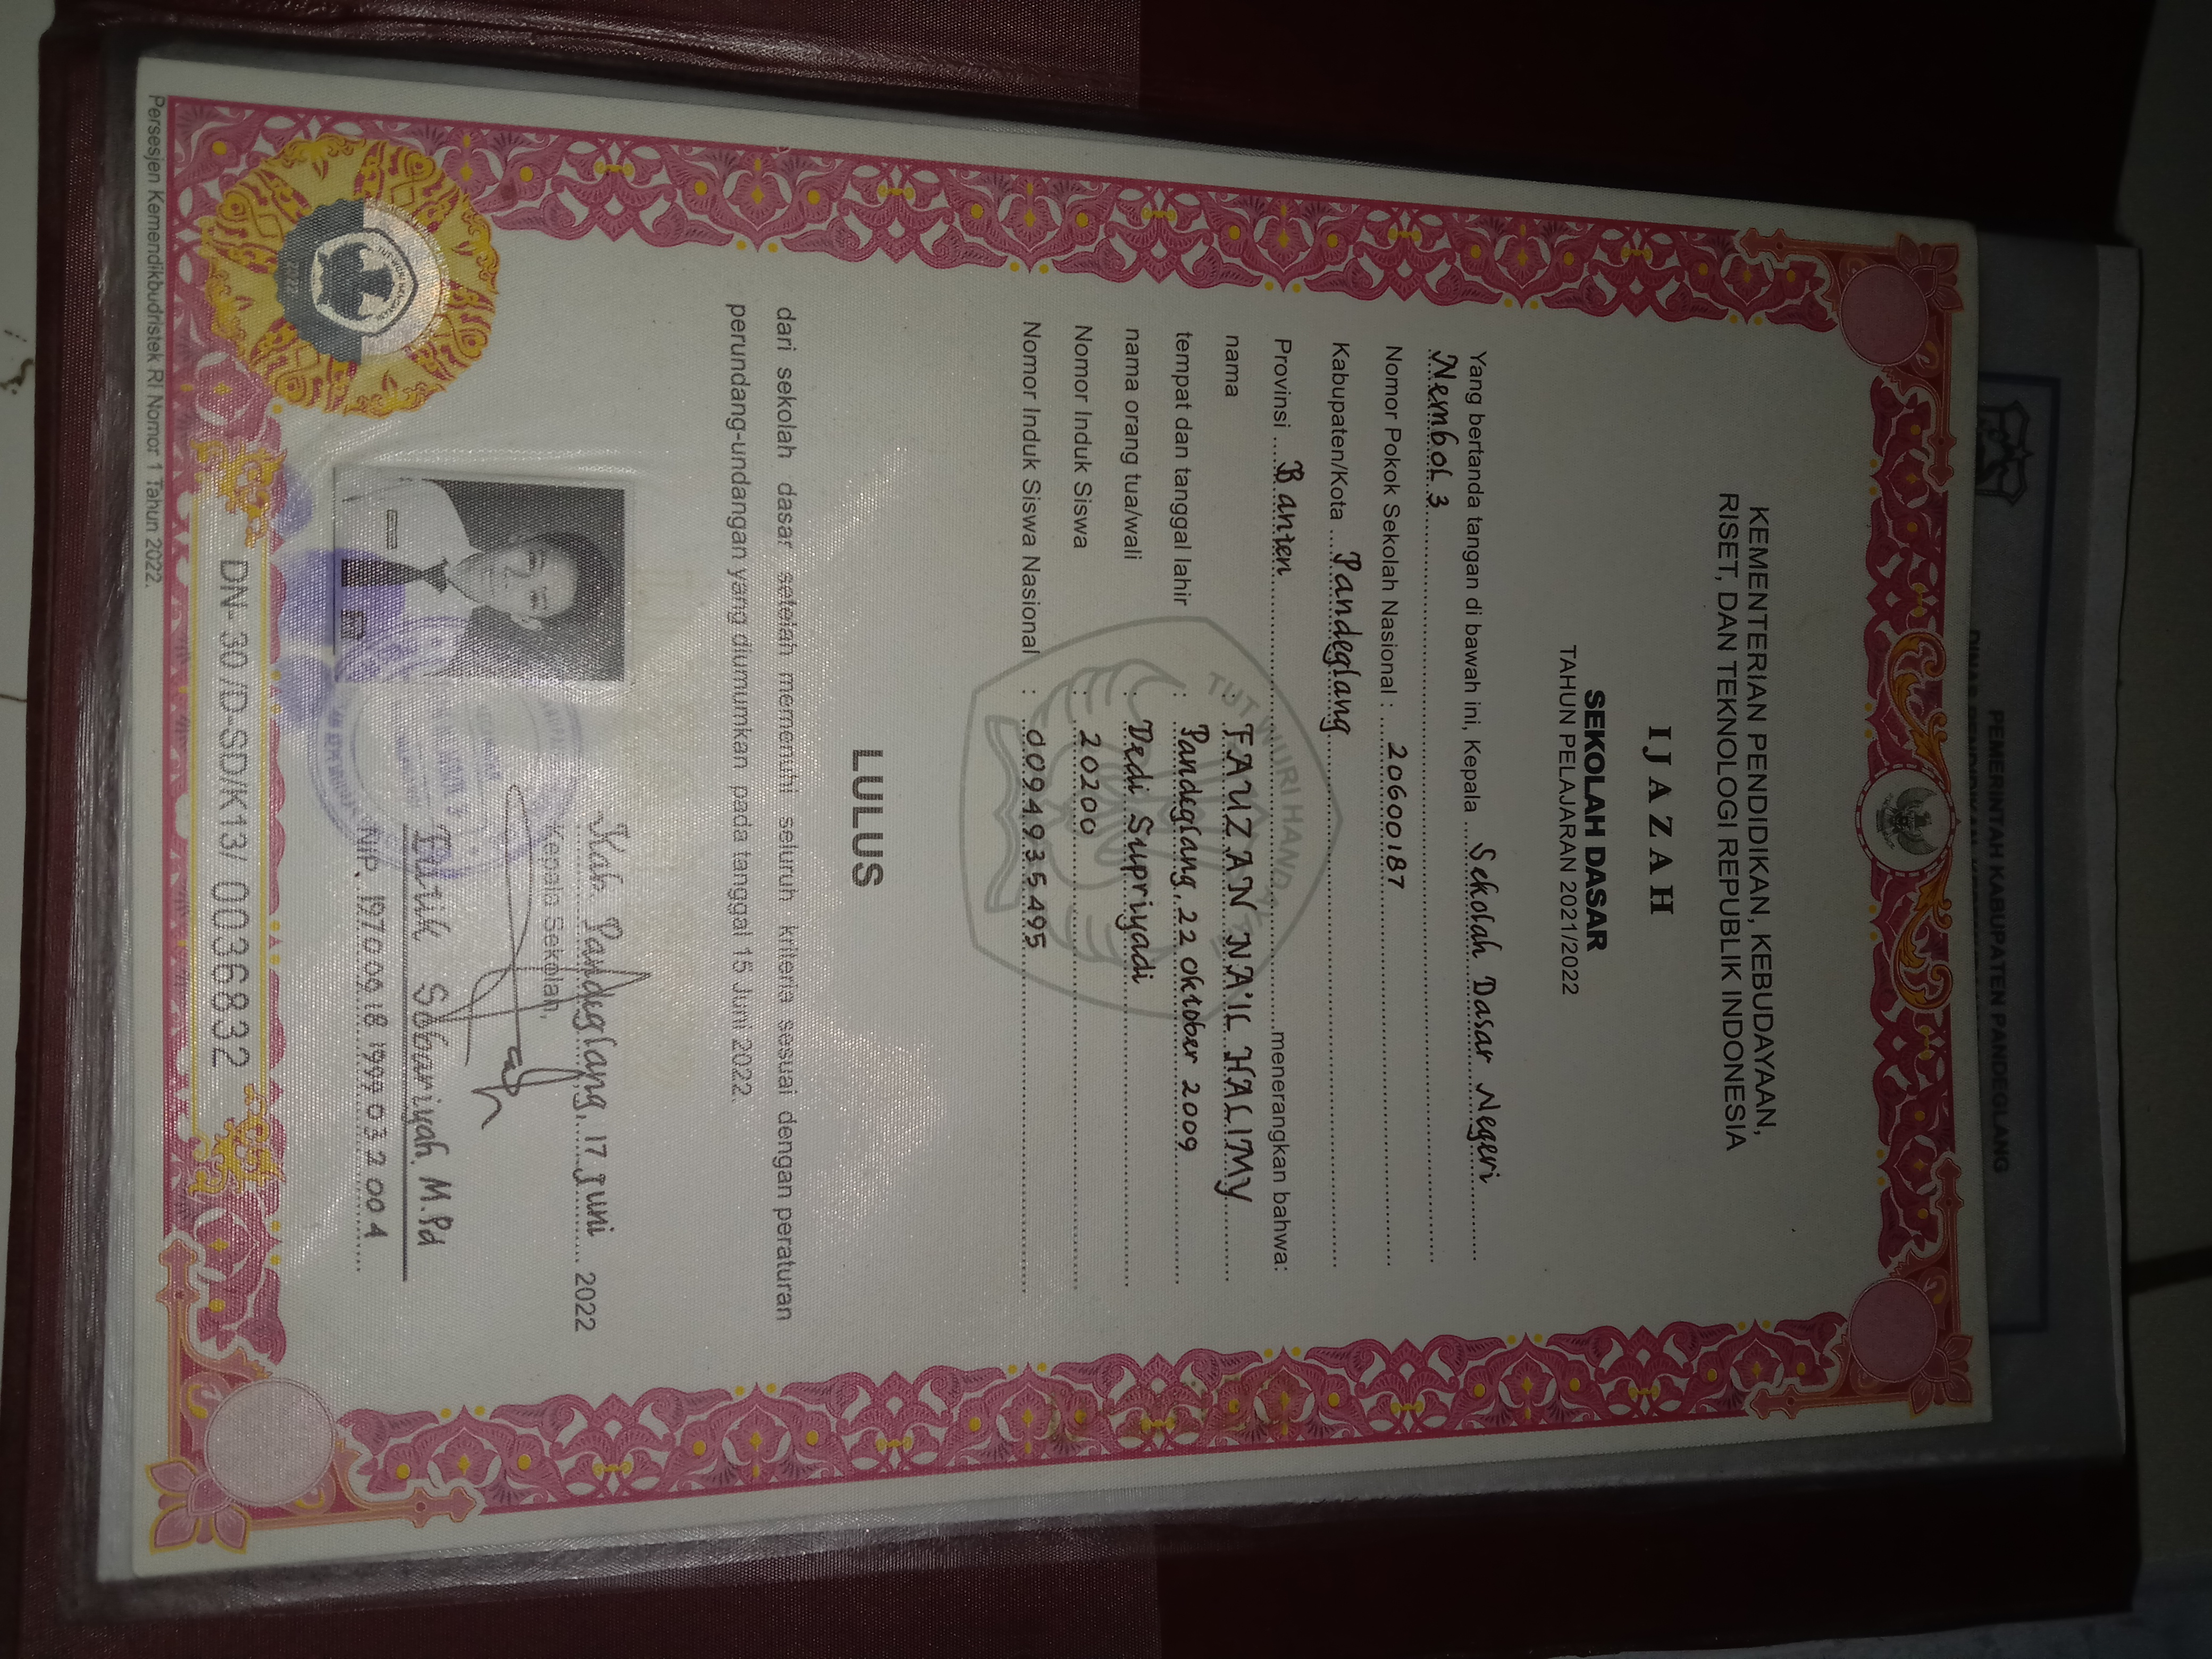 PEMERINTAH KABUPATEN PANDEGLANG
KEMENTERIAN PENDIDIKAN, KEBUDAYAAN,
RISET, DAN TEKNOLOGI REPUBLIK INDONESIA
IJAZAH
SEKOLAH DASAR
TAHUN PELAJARAN 2021/2022
Yang bertanda tangan di bawah ini, Kepala Sekolah Dasar Negeri
Nembol 3
Nomor Pokok Sekolah Nasional : 20600187
Kabupaten/Kota Pandeglang
Provinsi Banten menerangkan bahwa:
nama : FAUZAN NA'IL HALIMY
tempat dan tanggal lahir : Pandeglang, 22 Oktober 2009
nama orang tua/wali : Dedi Supriyadi
Nomor Induk Siswa : 20200
Nomor Induk Siswa Nasional : 0094935495
TUT WURI HANDAYANI
LULUS
dari sekolah dasar setelah memenuhi seluruh kriteria sesuai dengan peraturan
perundang-undangan yang diumumkan pada tanggal 15 Juni 2022.
Kab. Pandeglang, 17 Juni 2022
Kepala Sekolah,
Sobariyah, M.Pd
NIP. 19700918 199903 2 004
DN-30 /D-SD/K13/ 0036832
Persesjen Kemendikbudristek RI Nomor 1 Tahun 2022.